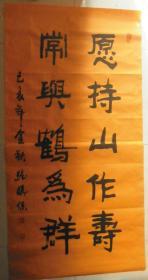 愿持山作壽
常與鶴為群
己亥年金秋